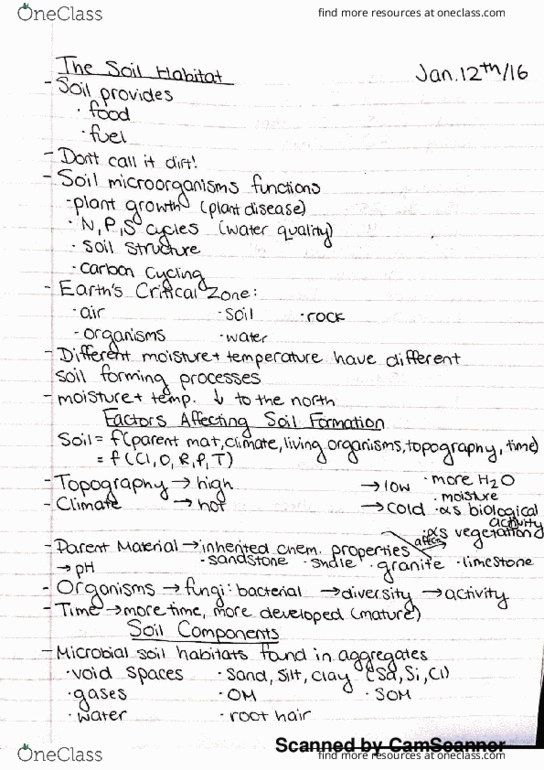 OneClass
find more resources at oneclass.com
The Soil Habitat
Jan. 12th/16
- Soil provides
· food
· fuel
- Don't call it dirt!
- Soil microorganisms functions
· plant growth (plant disease)
· N, P, S cycles (water quality)
· soil structure
· carbon cycling
- Earth's Critical Zone:
· air · soil · rock
· organisms · water
- Different moisture + temperature have different
soil forming processes
- moisture + temp. ↓ to the north
Factors Affecting Soil Formation
Soil = f(parent mat, climate, living organisms, topography, time)
= f(Cl, O, R, P, T)
- Topography → high → low · more H2O
· moisture
- Climate → hot → cold · αs biological
activity
· αs vegetation
- Parent Material → inherited chem. properties affects
→ pH · sandstone · shale · granite · limestone
- Organisms → fungi : bacterial → diversity → activity
- Time → more time, more developed (mature)
Soil Components
- Microbial soil habitats found in aggregates
· void spaces · Sand, Silt, Clay (Sa, Si, Cl)
· gases · OM · SOM
· water · root hair
Scanned by CamScanner
OneClass
find more resources at oneclass.com